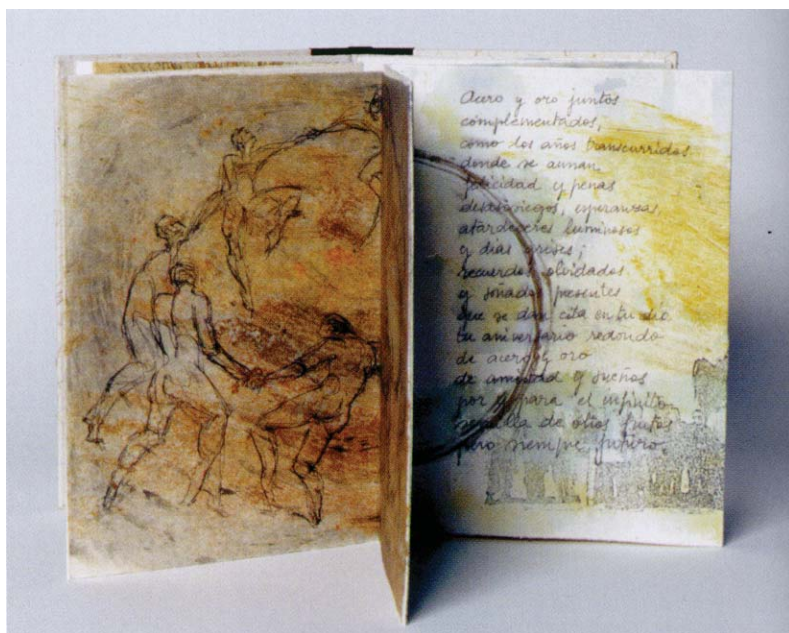 Acero y oro juntos
complementados,
como los años transcurridos
donde se aunan,
felicidad y penas
desasosiegos, esperanzas
atardeceres luminosos
y días grises;
recuerdos olvidados
y soñados presentes
que se dan cita en tu día
tu aniversario redondo
de acero y oro
de amistad y sueños
por y para el infinito
semilla de otros frutos
pero siempre futuro.